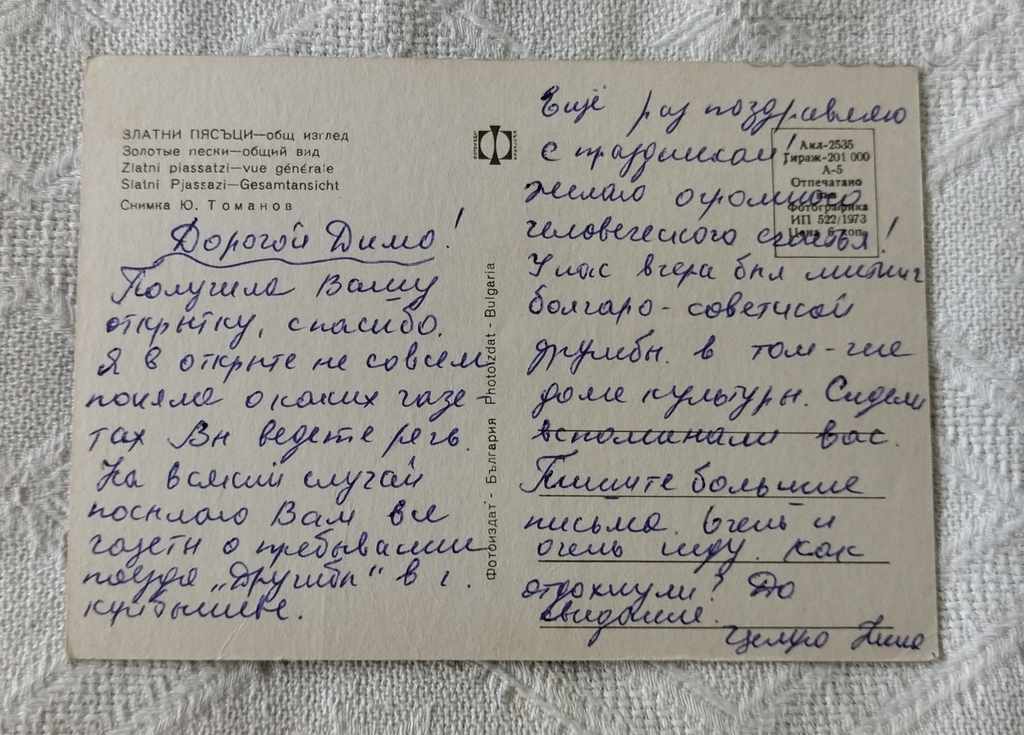 ЗЛАТНИ ПЯСЪЦИ—общ изглед
Золотые пески—общий вид
Zlatni piassatzi—vue générale
Slatni Pjassazi—Gesamtansicht
Снимка Ю. Томанов
Дорогой Димо!
Получила Вашу
открытку, спасибо.
Я в открыте не совсем
поняла о каких газе-
тах Вы ведете речь.
На всякий случай
посылаю Вам все
газеты о пребывании
поезда „Дружбы“ в г.
куйбышеве.
Фотоиздат - България Photoizdat - Bulgaria
Ещё раз поздравляю
с праздником!
желаю огромного
человеческого счастья!
У нас вчера был митинг
болгаро-советской
дружбы. в том-же
доме культуры. Сидели
вспоминали вас.
Пишите большие
письма. Очень и
очень жду. Как
отдохнули? До
свидание.
Целую Нина
Акл-2535
Тираж-201 000
А-5
Отпечатано
Фотографика
ИП 522/1973
Цена 6 коп.